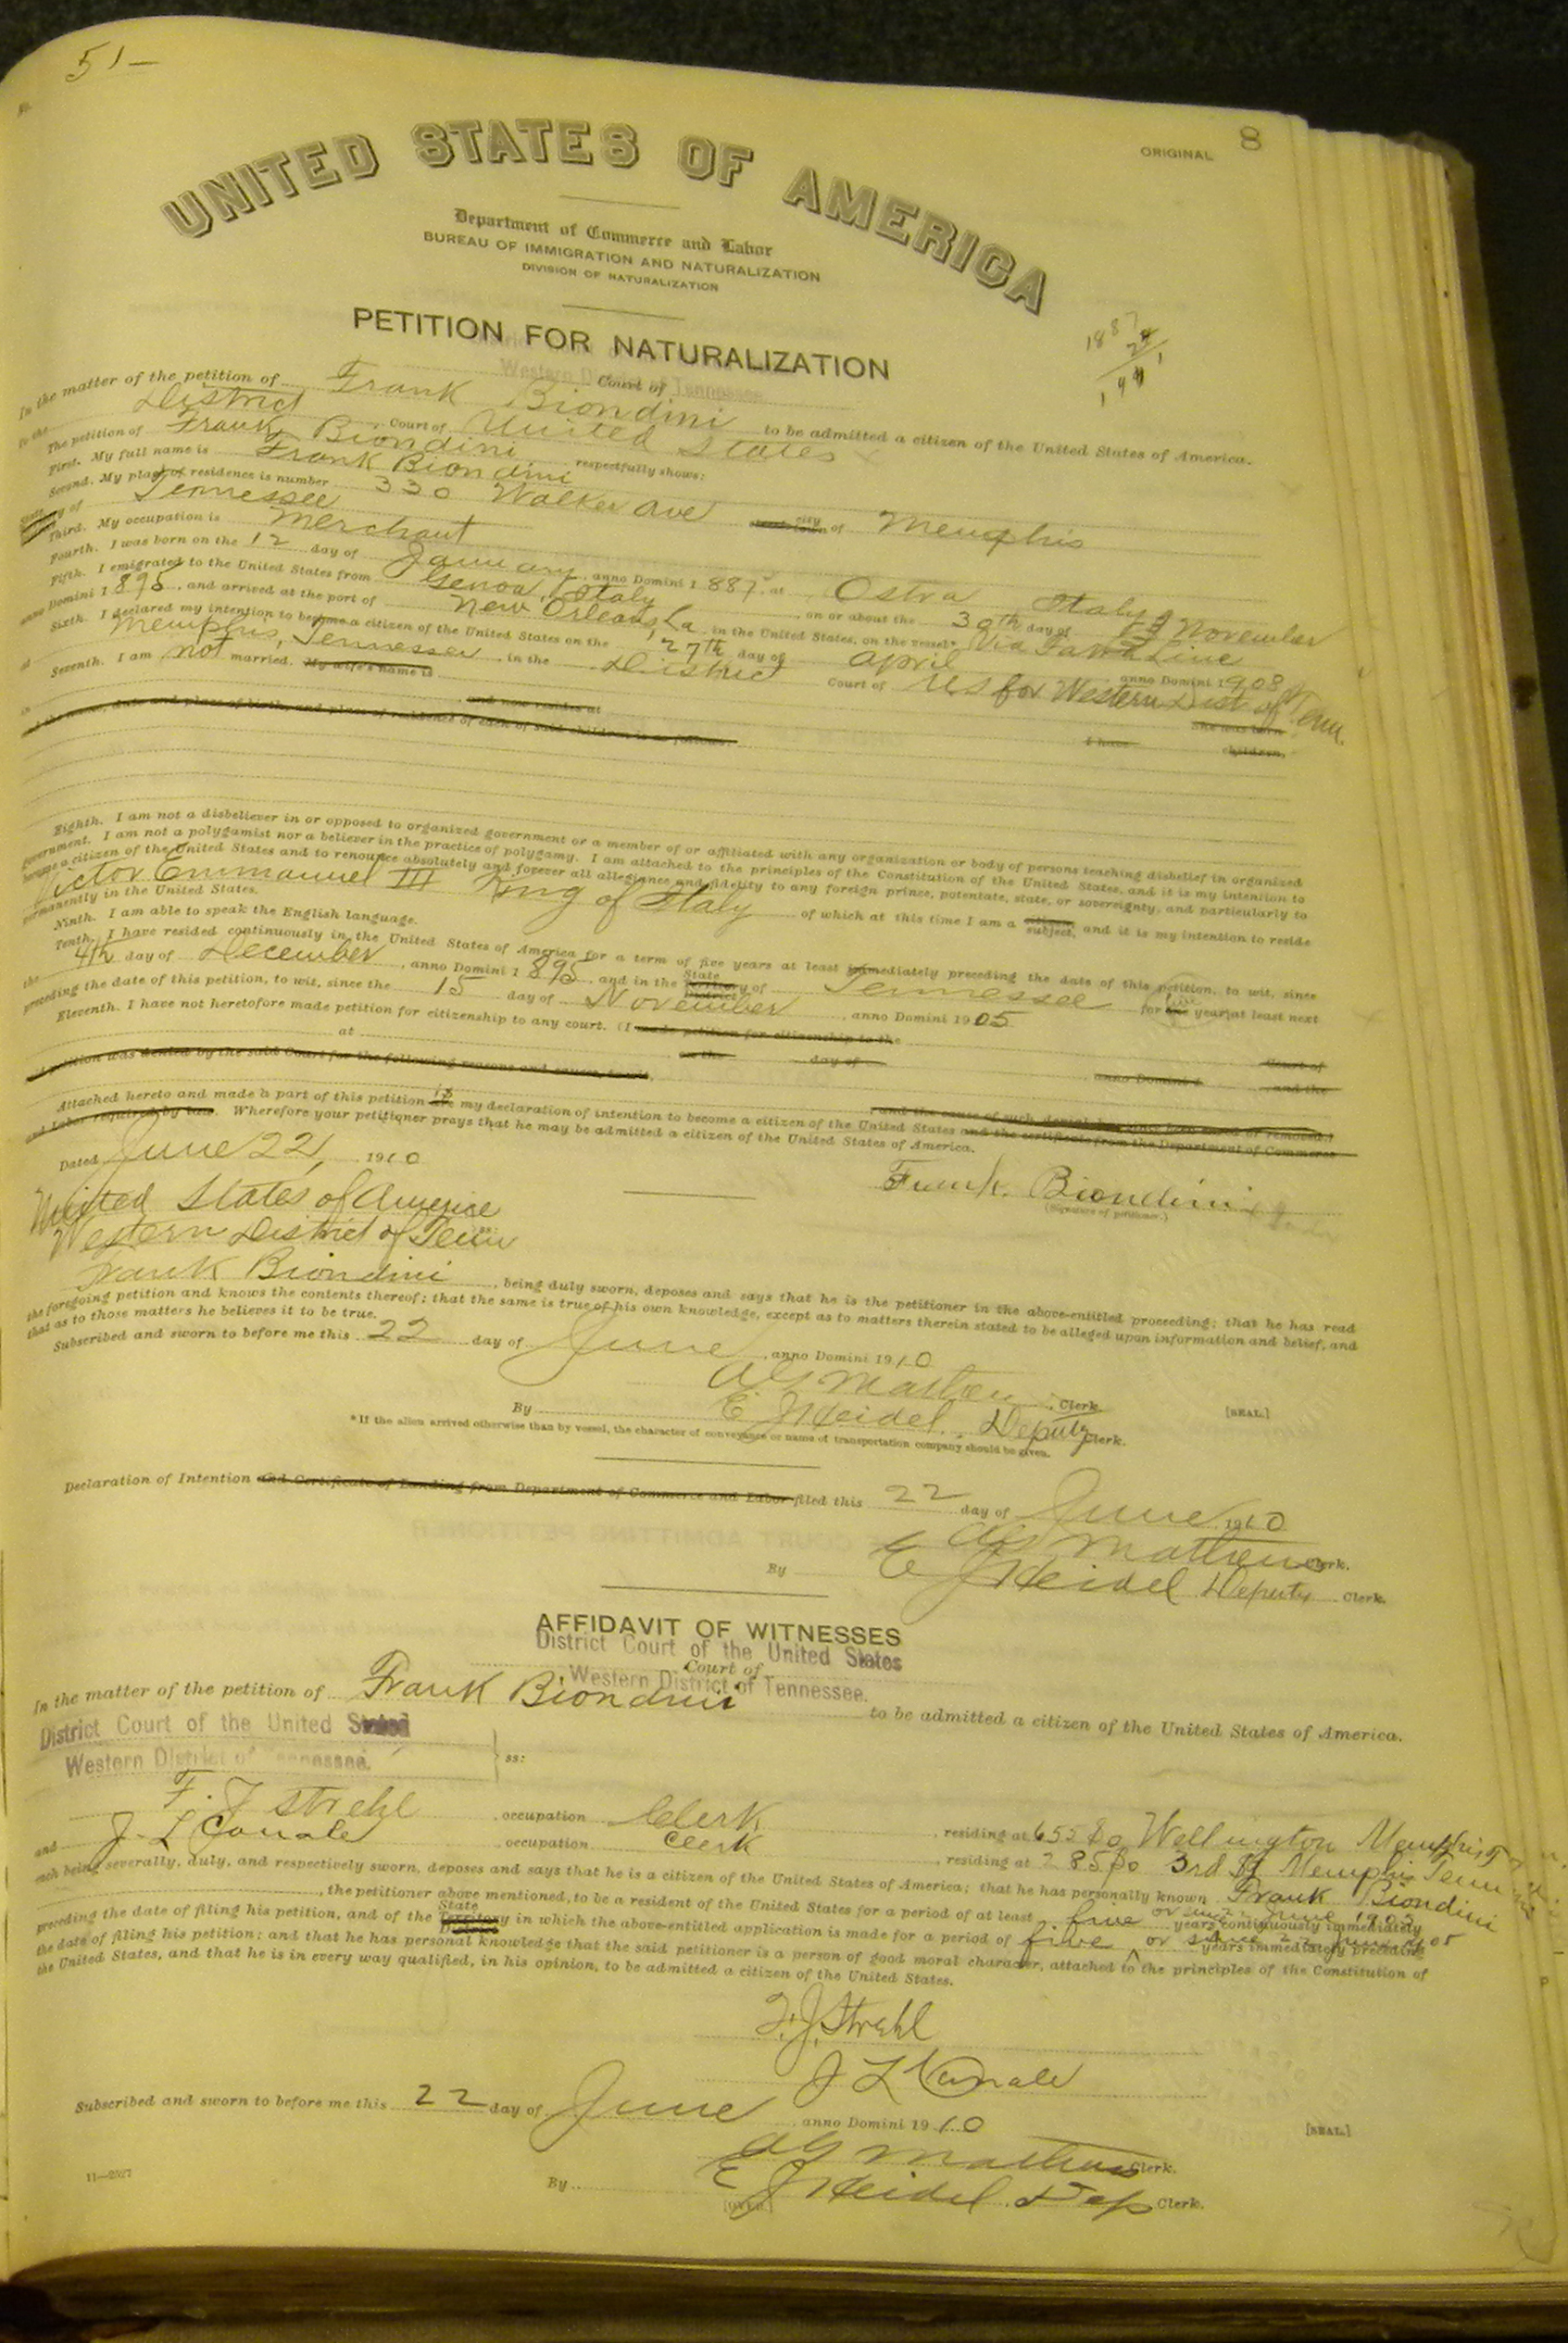 51—
ORIGINAL 8
UNITED STATES OF AMERICA
Department of Commerce and Labor
BUREAU OF IMMIGRATION AND NATURALIZATION
DIVISION OF NATURALIZATION
PETITION FOR NATURALIZATION
1887
24
Western District of Tennessee
Court of
In the matter of the petition of Frank Biondini to be admitted a citizen of the United States of America.
To the District Court of United States
The petition of Frank Biondini respectfully shows:
First. My full name is Frank Biondini
Second. My place of residence is number 330 Walker Ave city of Memphis
State of Tennessee
Third. My occupation is Merchant
Fourth. I was born on the 12 day of January, anno Domini 1887 at Ostra Italy
Fifth. I emigrated to the United States from Genoa, Italy, on or about the 30th day of November
anno Domini 1895, and arrived at the port of New Orleans La, in the United States, on the vessel* Via Line
Sixth. I declared my intention to become a citizen of the United States on the 27th day of April anno Domini 1908
at Memphis, Tennessee, in the District Court of US for Western Dist of Tenn.
Seventh. I am not married. My wife's name is
in and now resides at She was born
I have children,
and the name, date and place of birth, and place of residence of each of said children is as follows:
Eighth. I am not a disbeliever in or opposed to organized government or a member of or affiliated with any organization or body of persons teaching disbelief in organized
government. I am not a polygamist nor a believer in the practice of polygamy. I am attached to the principles of the Constitution of the United States, and it is my intention to
become a citizen of the United States and to renounce absolutely and forever all allegiance and fidelity to any foreign prince, potentate, state, or sovereignty, and particularly to
Victor Emmanuel III King of Italy of which at this time I am a citizen subject, and it is my intention to reside
permanently in the United States.
Ninth. I am able to speak the English language.
Tenth. I have resided continuously in the United States of America for a term of five years at least immediately preceding the date of this petition, to wit, since
the 4th day of December, anno Domini 1895 and in the State Territory District of Tennessee for one year at least next
preceding the date of this petition, to wit, since the 15 day of November, anno Domini 1905
Eleventh. I have not heretofore made petition for citizenship to any court. (I made petition for citizenship to the Court of
at on the day of anno Domini 1 and the
said petition was denied by the said Court for the following reasons and causes, to wit,
and the cause of such denial has since been cured or removed.)
Attached hereto and made a part of this petition are is my declaration of intention to become a citizen of the United States and the certificate from the Department of Commerce
and Labor required by law. Wherefore your petitioner prays that he may be admitted a citizen of the United States of America.
Dated June 22, 1910
Frank Biondini
(Signature of petitioner.)
United States of America
Western District of Tenn ss:
Frank Biondini, being duly sworn, deposes and says that he is the petitioner in the above-entitled proceeding; that he has read
the foregoing petition and knows the contents thereof; that the same is true of his own knowledge, except as to matters therein stated to be alleged upon information and belief, and
that as to those matters he believes it to be true.
Subscribed and sworn to before me this 22 day of June, anno Domini 1910
[SEAL.]
Clerk.
By E J Heidel, Deputy Clerk.
*If the alien arrived otherwise than by vessel, the character of conveyance or name of transportation company should be given.
Declaration of Intention and Certificate of Landing from Department of Commerce and Labor filed this 22 day of June 1910
Clerk.
By E J Heidel Deputy Clerk.
AFFIDAVIT OF WITNESSES
District Court of the United States
Court of
Western District of Tennessee.
In the matter of the petition of Frank Biondini to be admitted a citizen of the United States of America.
District Court of the United States
Western District of Tennessee. ss:
F. J Strehl, occupation Clerk, residing at 655 So Wellington Memphis
and J. L Canale, occupation Clerk, residing at 285 So 3rd St Memphis Tenn
each being severally, duly, and respectively sworn, deposes and says that he is a citizen of the United States of America; that he has personally known Frank Biondini
, the petitioner above mentioned, to be a resident of the United States for a period of at least five years continuously immediately
preceding the date of filing his petition, and of the State Territory District in which the above-entitled application is made for a period of five years immediately preceding
the date of filing his petition; and that he has personal knowledge that the said petitioner is a person of good moral character, attached to the principles of the Constitution of
the United States, and that he is in every way qualified, in his opinion, to be admitted a citizen of the United States.
F. J. Strehl
J L Canale
Subscribed and sworn to before me this 22 day of June, anno Domini 1910
[SEAL.]
Clerk.
By E J Heidel Dep Clerk.
11—2527
[OVER.]